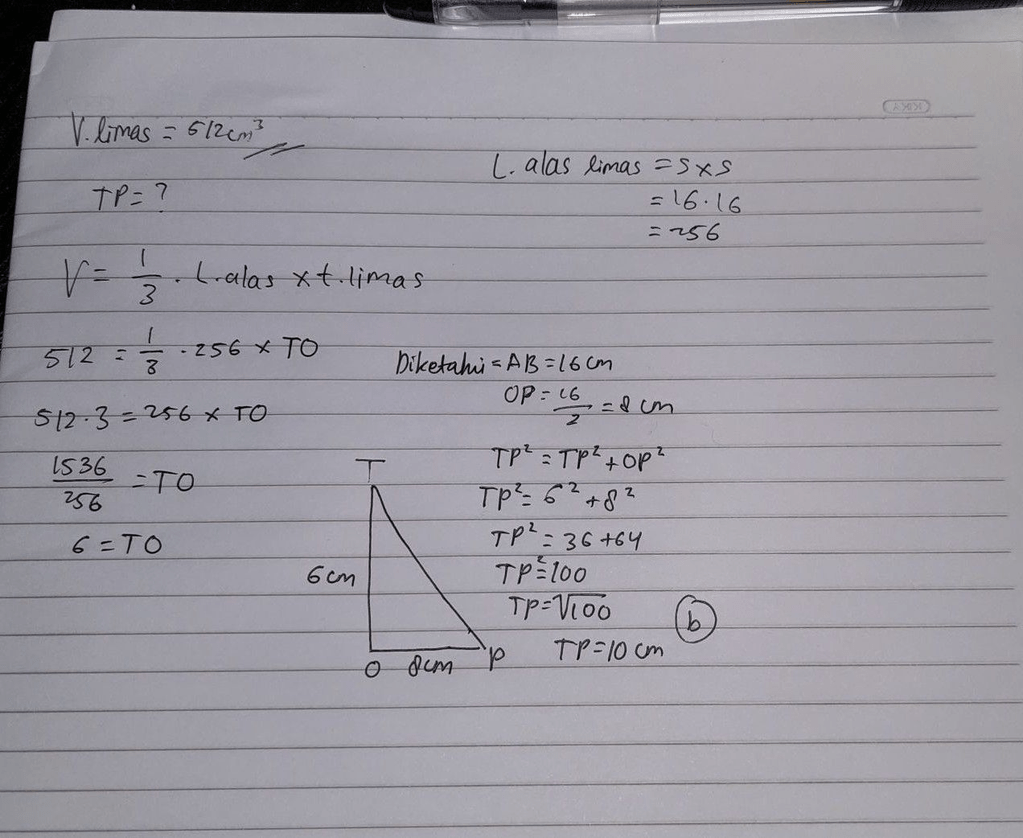 V. limas = 512cm³
TP = ?
L. alas limas = s x s
= 16 · 16
= 256
V = 1/3 . L. alas x t. limas
512 = 1/3 · 256 x TO
512 · 3 = 256 x TO
1536/256 = TO
6 = TO
Diketahui = AB = 16 cm
OP = 16/2 = 8 cm
TP² = TP² + OP²
TP² = 6² + 8²
TP² = 36 + 64
TP² = 100
TP = √100
TP = 10 cm
b
T
6 cm
O 8cm P
KIKY